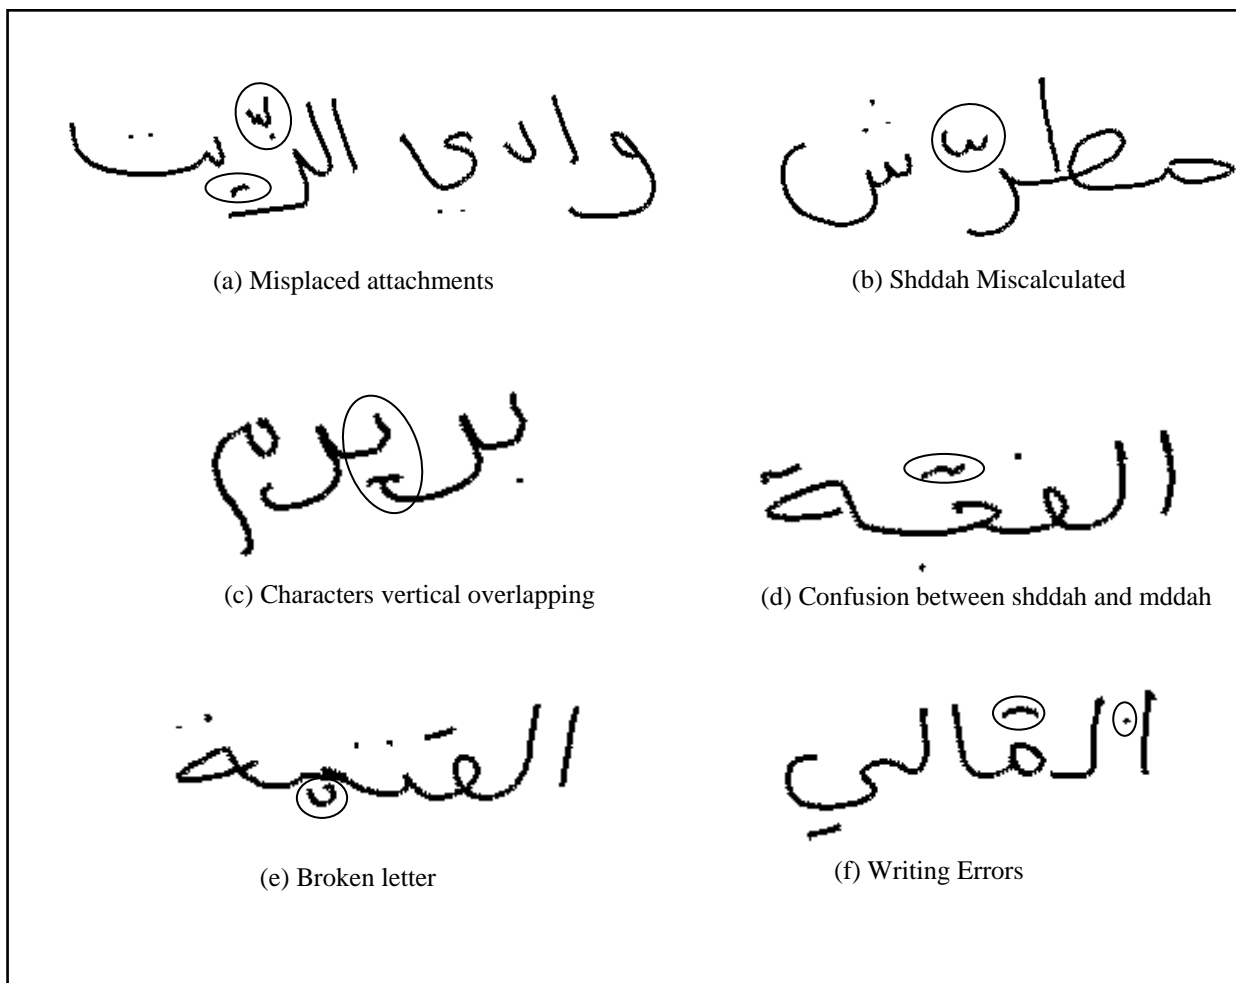 وادي الزّيت
مطرّش
(a) Misplaced attachments
(b) Shddah Miscalculated
(c) Characters vertical overlapping
(d) Confusion between shddah and mddah
(e) Broken letter
(f) Writing Errors